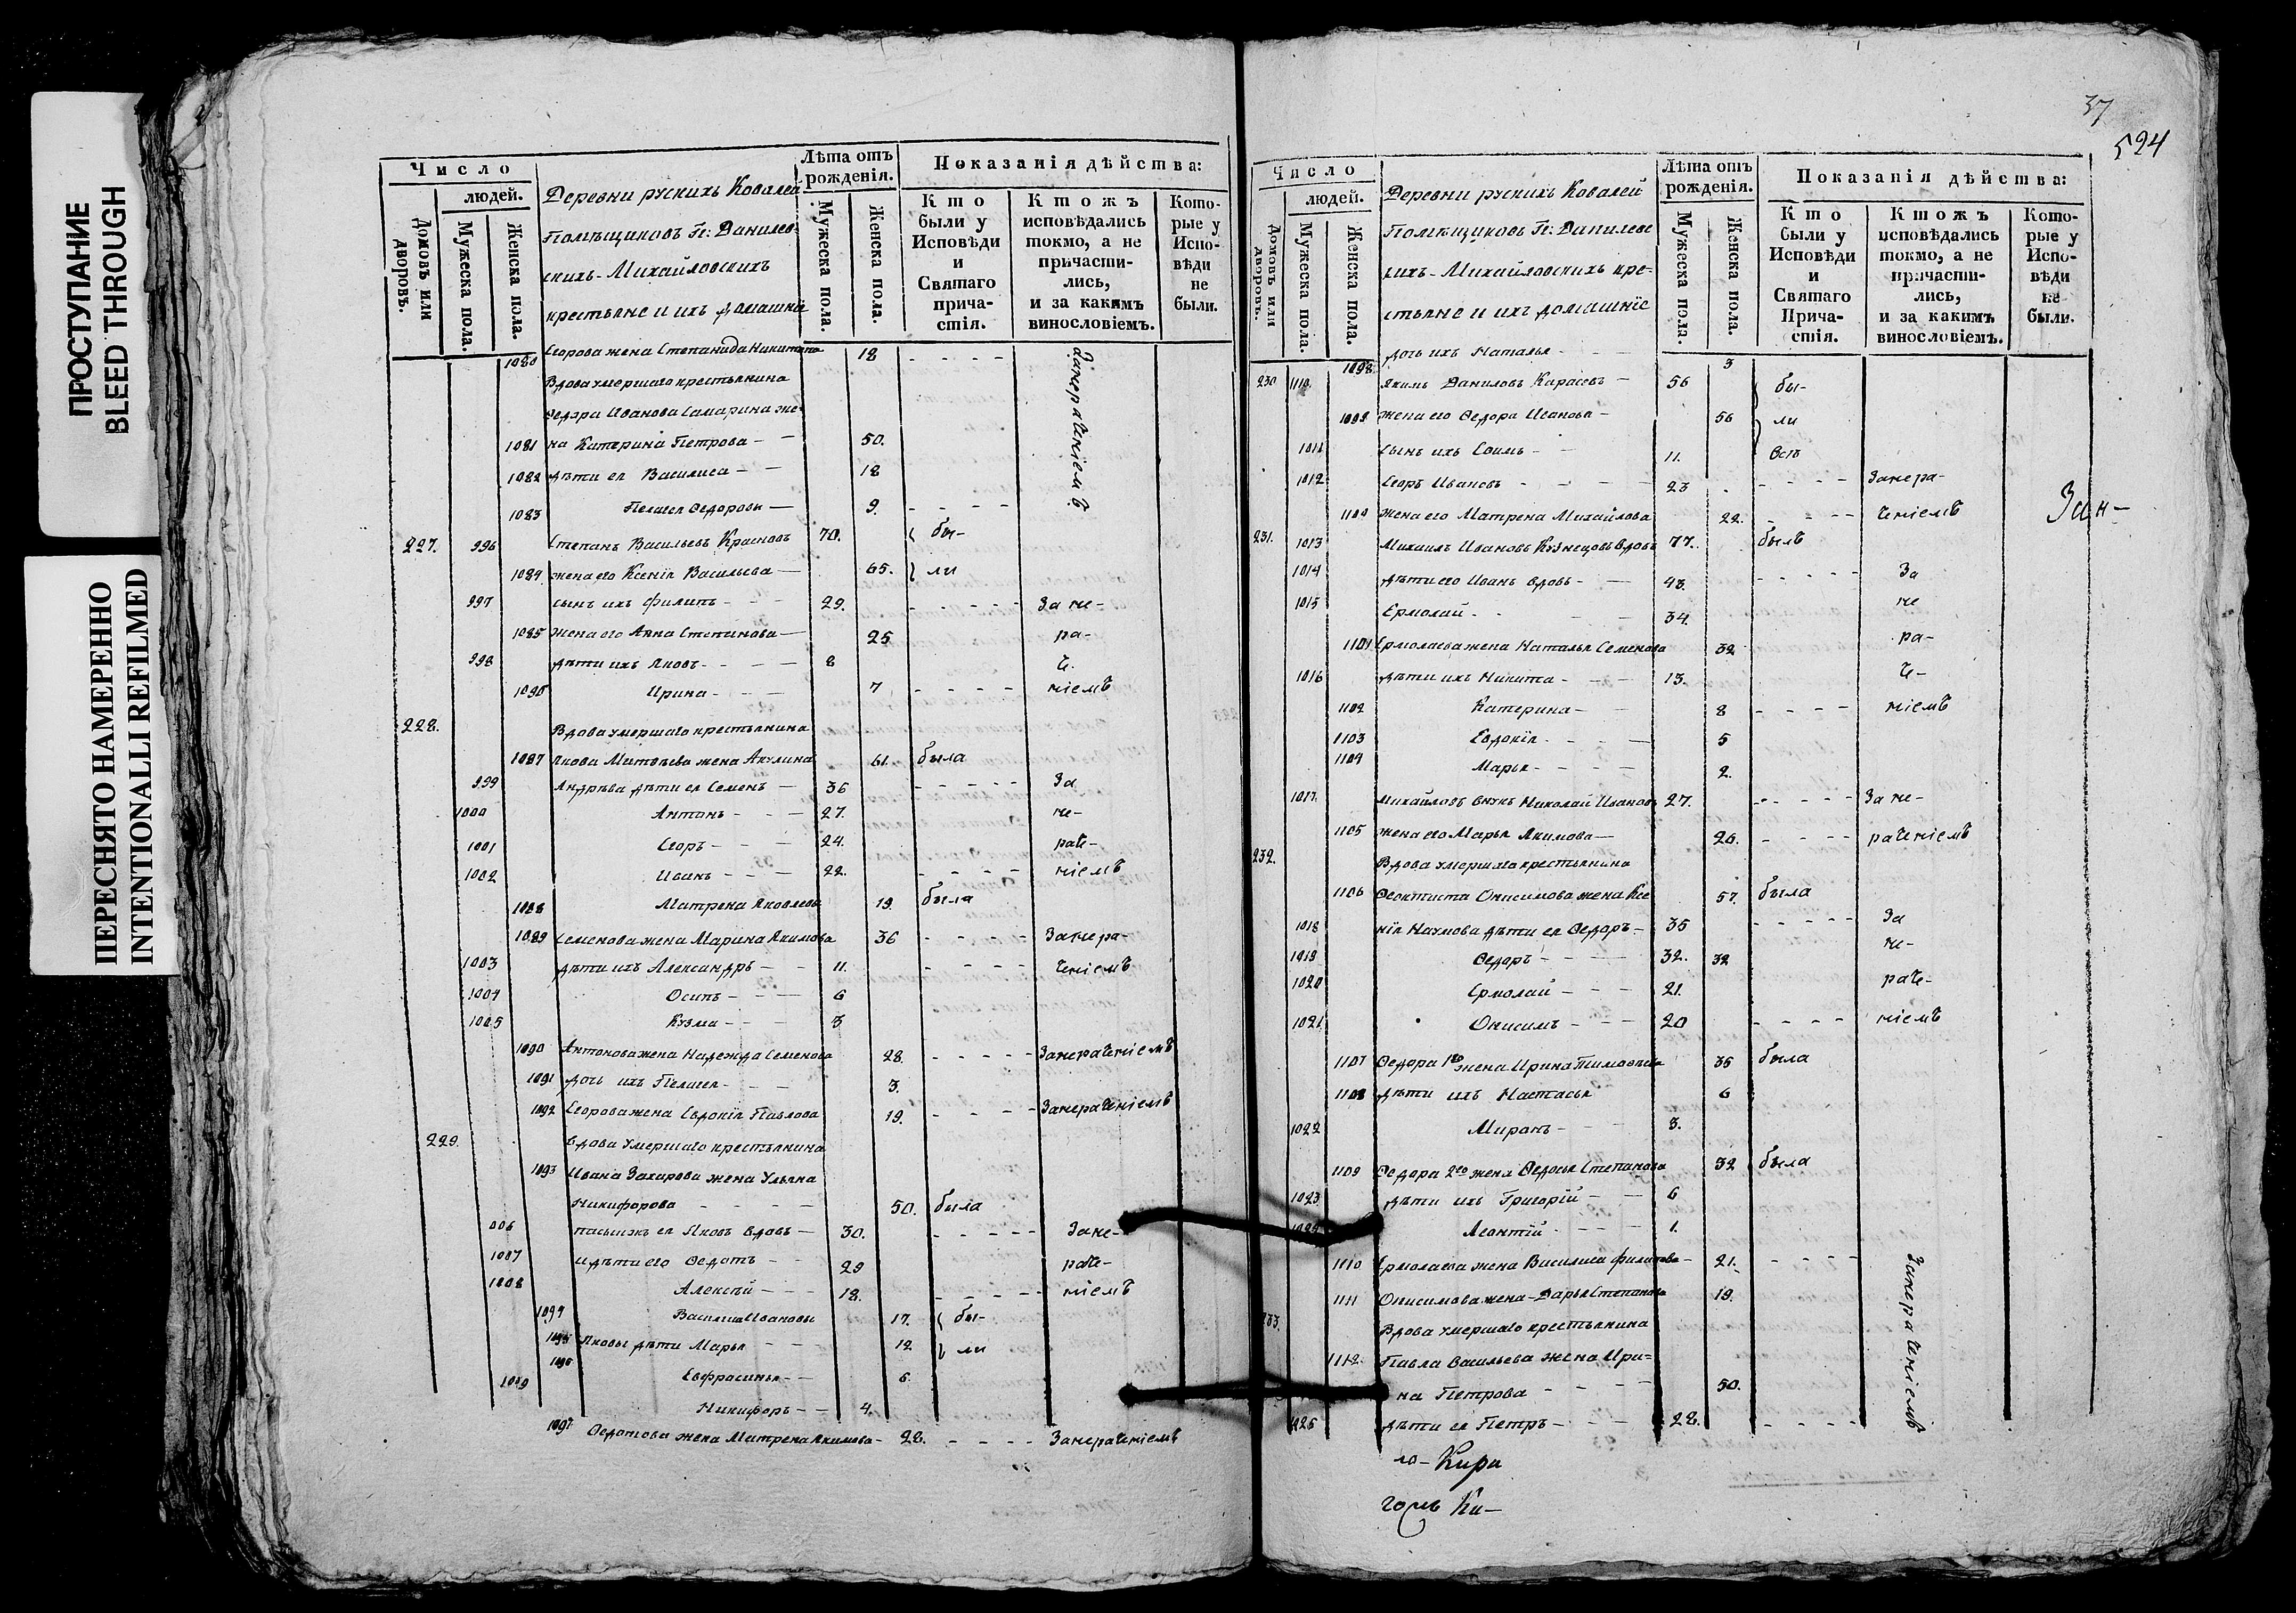 ПРОСТУПАНИЕ
BLEED THROUGH
ПЕРЕСНЯТО НАМЕРЕННО
INTENTIONALLI REFILMED
Число
людей.
Домовъ или дворовъ.
Мужеска пола.
Женска пола.
Деревни рускихъ Ковалей
Помѣщиковъ Гг: Данилев-
скихъ-Михайловскихъ
крестьяне и ихъ домашніе
Лѣта отъ рожденія.
Мужеска пола.
Женска пола.
Показанія дѣйства:
Кто были у Исповѣди и Святаго причастія.
Ктожъ исповѣдались токмо, а не причастились, и за какимъ винословіемъ.
Которые у Исповѣди не были.
1080 Егорова жена Степанида Никитина 18 - - - - Занераченіемъ
Вдова умершаго крестьянина
Ѳедора Иванова Самарина же-
1081 на Катерина Петрова - - 50.
1082 дѣти ея Василиса - - 18
1083 Пелагея Ѳедоровы - 9. - - - -
227. 996 Степанъ Васильевъ Красновъ 70. бы-
1084 жена его Ксенія Васильева - 65. ли
997 сынъ ихъ Филипъ - - - 29. - - - - За не-
1085 жена его Анна Степанова - 25 ра-
998 дѣти ихъ Яковъ - - - - 8 че-
1086 Ирина - - - 7 - - - - ніемъ
228. Вдова умершаго крестьянина
1087 Якова Матвѣева жена Акулина 61. была
999 Андрѣева дѣти ея Семенъ - 36 - - - - За
1000 Антонъ - - - 27. не-
1001 Егоръ - - - 24. раче-
1002 Иванъ - - - 22. - - - - ніемъ
1088 Матрена Яковлевы 19. была
1089 Семенова жена Марина Якимова 36 - - - - Занера-
1003 дѣти ихъ Александръ - - 11. - - - - ченіемъ
1004 Осипъ - - - 6
1005 Кузма - - - 3
1090 Антонова жена Надежда Семенова 28. - - - - Занераченіемъ
1091 дочь ихъ Пелагея - - - 3.
1092 Егорова жена Евдокія Павлова 19. - - - - Занераченіемъ
229. Вдова умершаго крестьянина
1093 Ивана Захарова жена Ульяна
Никифорова - - - - 50. была
006 пасынокъ ея Яковъ вдовъ - 30. - - - - Зане-
1007 и дѣти его Ѳедотъ - - 29 раче-
1008 Алексѣй - - - 18. - - - - ніемъ
1094 Василиса Ивановы 17. бы-
1095 Яковы дѣти Марья - - 12 ли
1096 Евфросинья - - 6.
1009 Никифоръ - - 4.
1097 Ѳедотова жена Матрена Якимова - 28. - - - - Занераченіемъ
37
524
Число
людей.
Домовъ или дворовъ.
Мужеска пола.
Женска пола.
Деревни рускихъ Ковалей
Помѣщиковъ Гг: Данилевс
кихъ-Михайловскихъ кре-
стьяне и ихъ домашніе
Лѣта отъ рожденія.
Мужеска пола.
Женска пола.
Показанія дѣйства:
Кто были у Исповѣди и Святаго Причастія.
Ктожъ исповѣдались токмо, а не причастились, и за какимъ винословіемъ.
Которые у Исповѣди не были.
1098 дочь ихъ Наталья - - - 3
230 1110 Якимъ Даниловъ Карасевъ - 56 бы-
1099 жена его Ѳедора Иванова - 56 ли
1011 сынъ ихъ Ефимъ - - 11. всѣ
1012 Егоръ Ивановъ - - - 23 - - - - Занера-
1100 жена его Матрена Михайлова 22. - - - ченіемъ
Зан-
231. 1013 Михаилъ Ивановъ Кузнецовъ вдовъ 77. былъ
1014 дѣти его Иванъ вдовъ - - 43. - - - - За
1015 Ермолай - - - 34. не
1101 Ермолаева жена Наталья Семенова 32 ра-
1016 дѣти ихъ Никита - - - 13. че-
1102 Катерина - - 8 - - - - ніемъ
1103 Евдокія - - - 5
1104 Марья - - - 2.
1017. Михайловъ внукъ Николай Ивановъ 27. - - - - За не-
1105 жена его Марья Якимова - 26. - - - - раченіемъ
232. Вдова умершаго крестьянина
1106 Ѳеоктиста Онисимова жена Ксе 57. была
1018 нія Наумова дѣти ея Ѳедоръ - 35 - - - - За
1019 Ѳедоръ - - - - 32. 32 не-
1020 Ермолай - - - 21. раче-
1021 Онисимъ - - - 20 - - - - ніемъ
1107 Ѳедора 1го жена Ирина Тимоѳеева 35 была
1108 дѣти ихъ Настасья 6
1022 Миронъ - - - 3.
1109 Ѳедора 2го жена Ѳедосья Степанова 32 была
1023. дѣти ихъ Григорій - - 6
1024 Леонтій - - - 1.
1110 Ермолаева жена Василиса Филипова - 21. - - - - Занераченіемъ
1111 Онисимова жена - Дарья Степанова 19.
233. Вдова умершаго крестьянина
1112. Павла Васильева жена Ири=
на Петрова - - - - 50.
026 дѣти ея Петръ - - - 28. - - - -
ло- Кира